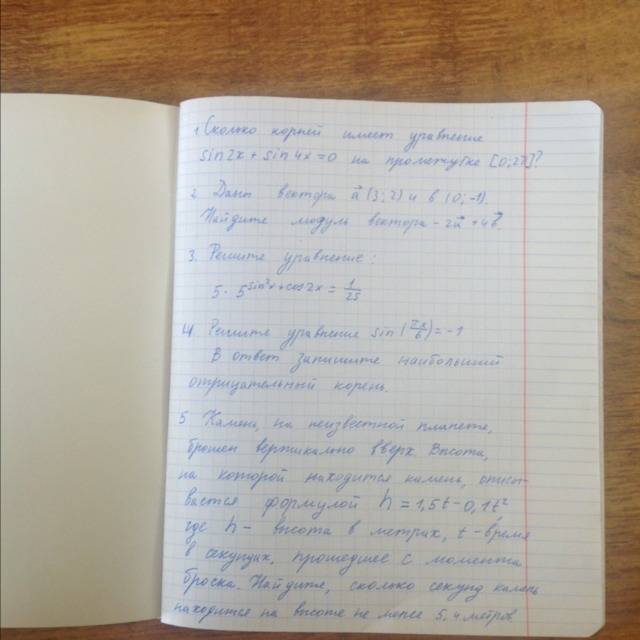 1. Сколько корней имеет уравнение
sin2x + sin4x = 0 на промежутке [0; 2π]?
2. Даны вектора a⃗ (3; 2) и b (0; -1).
Найдите модуль вектора -2a⃗ + 4b⃗.
3. Решите уравнение:
5 · 5^(sin²x + cos2x) = 1/25
4. Решите уравнение sin(πx/6) = -1
В ответ запишите наибольший
отрицательный корень.
5 Камень, на неизвестной планете,
брошен вертикально вверх. Высота,
на которой находится камень, описы-
вается формулой h = 1,5t - 0,1t²
где h - высота в метрах, t - время
в секундах, прошедшее с момента
броска. Найдите, сколько секунд камень
находится на высоте не менее 5,4 метров